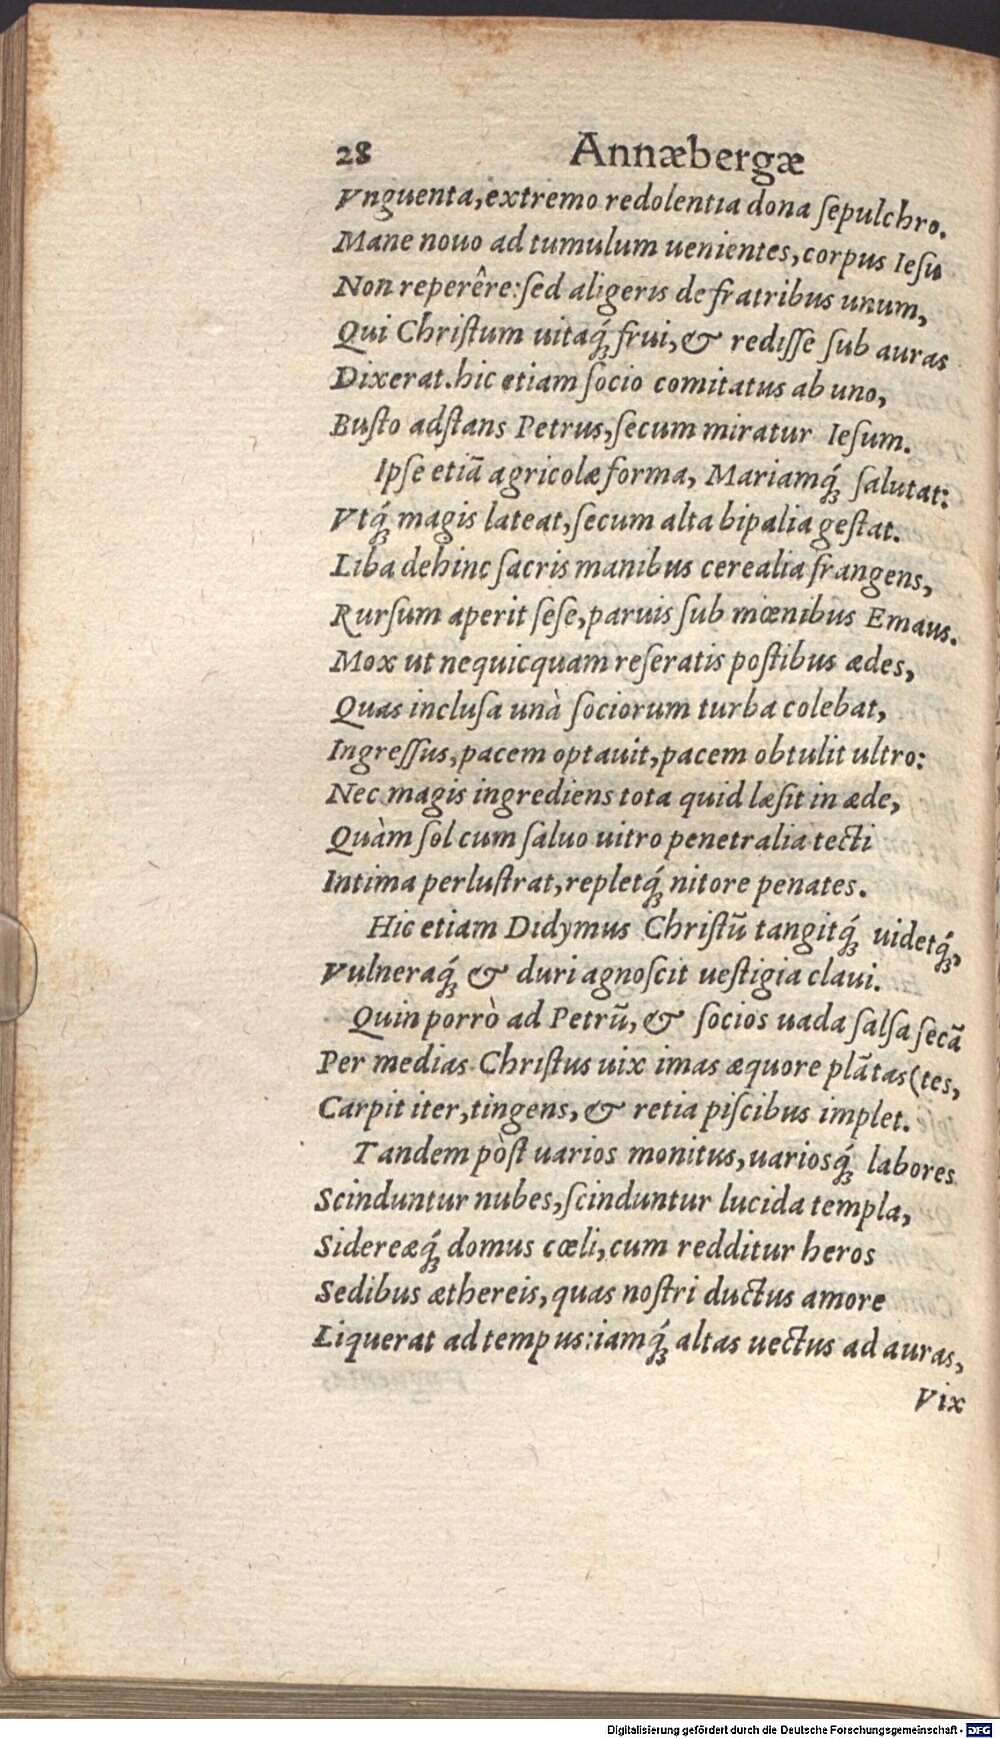 28 Annæbergæ
Vnguenta, extremo redolentia dona ſepulchro.
Mane nouo ad tumulum uenientes, corpus Ieſu
Non reperêre: ſed aligeris de fratribus unum,
Qui Chriſtum uitaq́ꝫ frui, & redijſſe ſub auras
Dixerat. hic etiam ſocio comitatus ab uno,
Buſto adſtans Petrus, ſecum miratur Ieſum.
Ipſe etiã agricolæ forma, Mariamq́ꝫ ſalutat:
Vtq́ꝫ magis lateat, ſecum alta bipalia geſtat.
Liba dehinc ſacris manibus cerealia frangens,
Rurſum aperit ſeſe, paruis ſub mœnibus Emaus.
Mox ut nequicquam reſeratis poſtibus ædes,
Quas incluſa unà ſociorum turba colebat,
Ingreſſus, pacem optauit, pacem obtulit ultro:
Nec magis ingrediens tota quid læſit in æde,
Quàm ſol cum ſaluo uitro penetralia tecti
Intima perluſtrat, repletq́ꝫ nitore penates.
Hic etiam Didymus Chriſtũ tangitq́ꝫ uidetq́ꝫ,
Vulneraq́ꝫ & duri agnoſcit ueſtigia claui.
Quin porrò ad Petrũ, & ſocios uada ſalſa ſecã
Per medias Chriſtus uix imas æquore plãtas (tes,
Carpit iter, tingens, & retia piſcibus implet.
Tandem pòſt uarios monitus, uariosq́ꝫ labores
Scinduntur nubes, ſcinduntur lucida templa,
Sidereæq́ꝫ domus cœli, cum redditur heros
Sedibus æthereis, quas noſtri ductus amore
Liquerat ad tempus: iamq́ꝫ altas uectus ad auras,
Vix
Digitalisierung gefördert durch die Deutsche Forschungsgemeinschaft - DFG